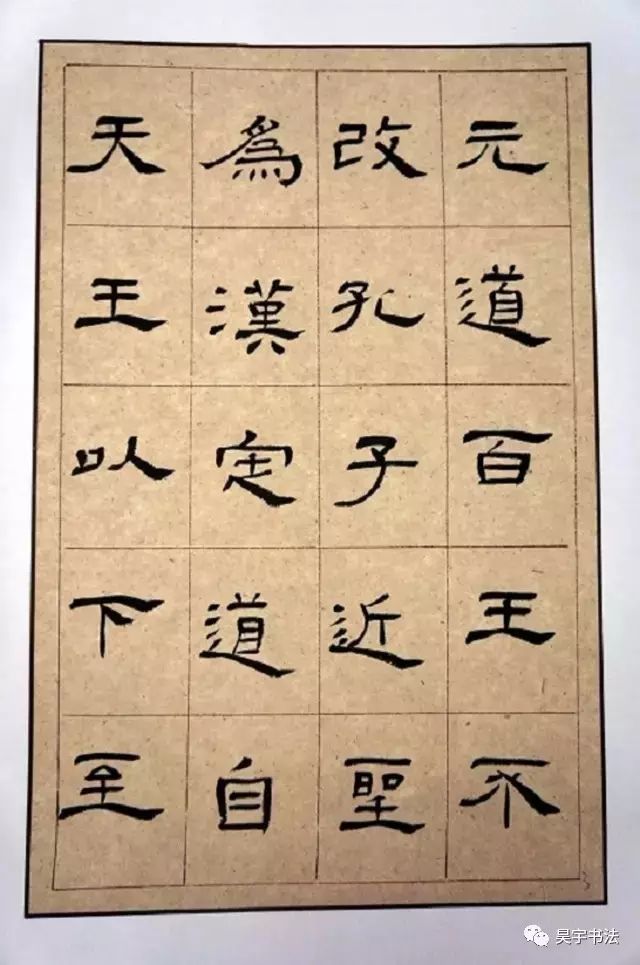 元道百王不
改孔子近聖
為漢定道自
天王以下至
昊宇书法